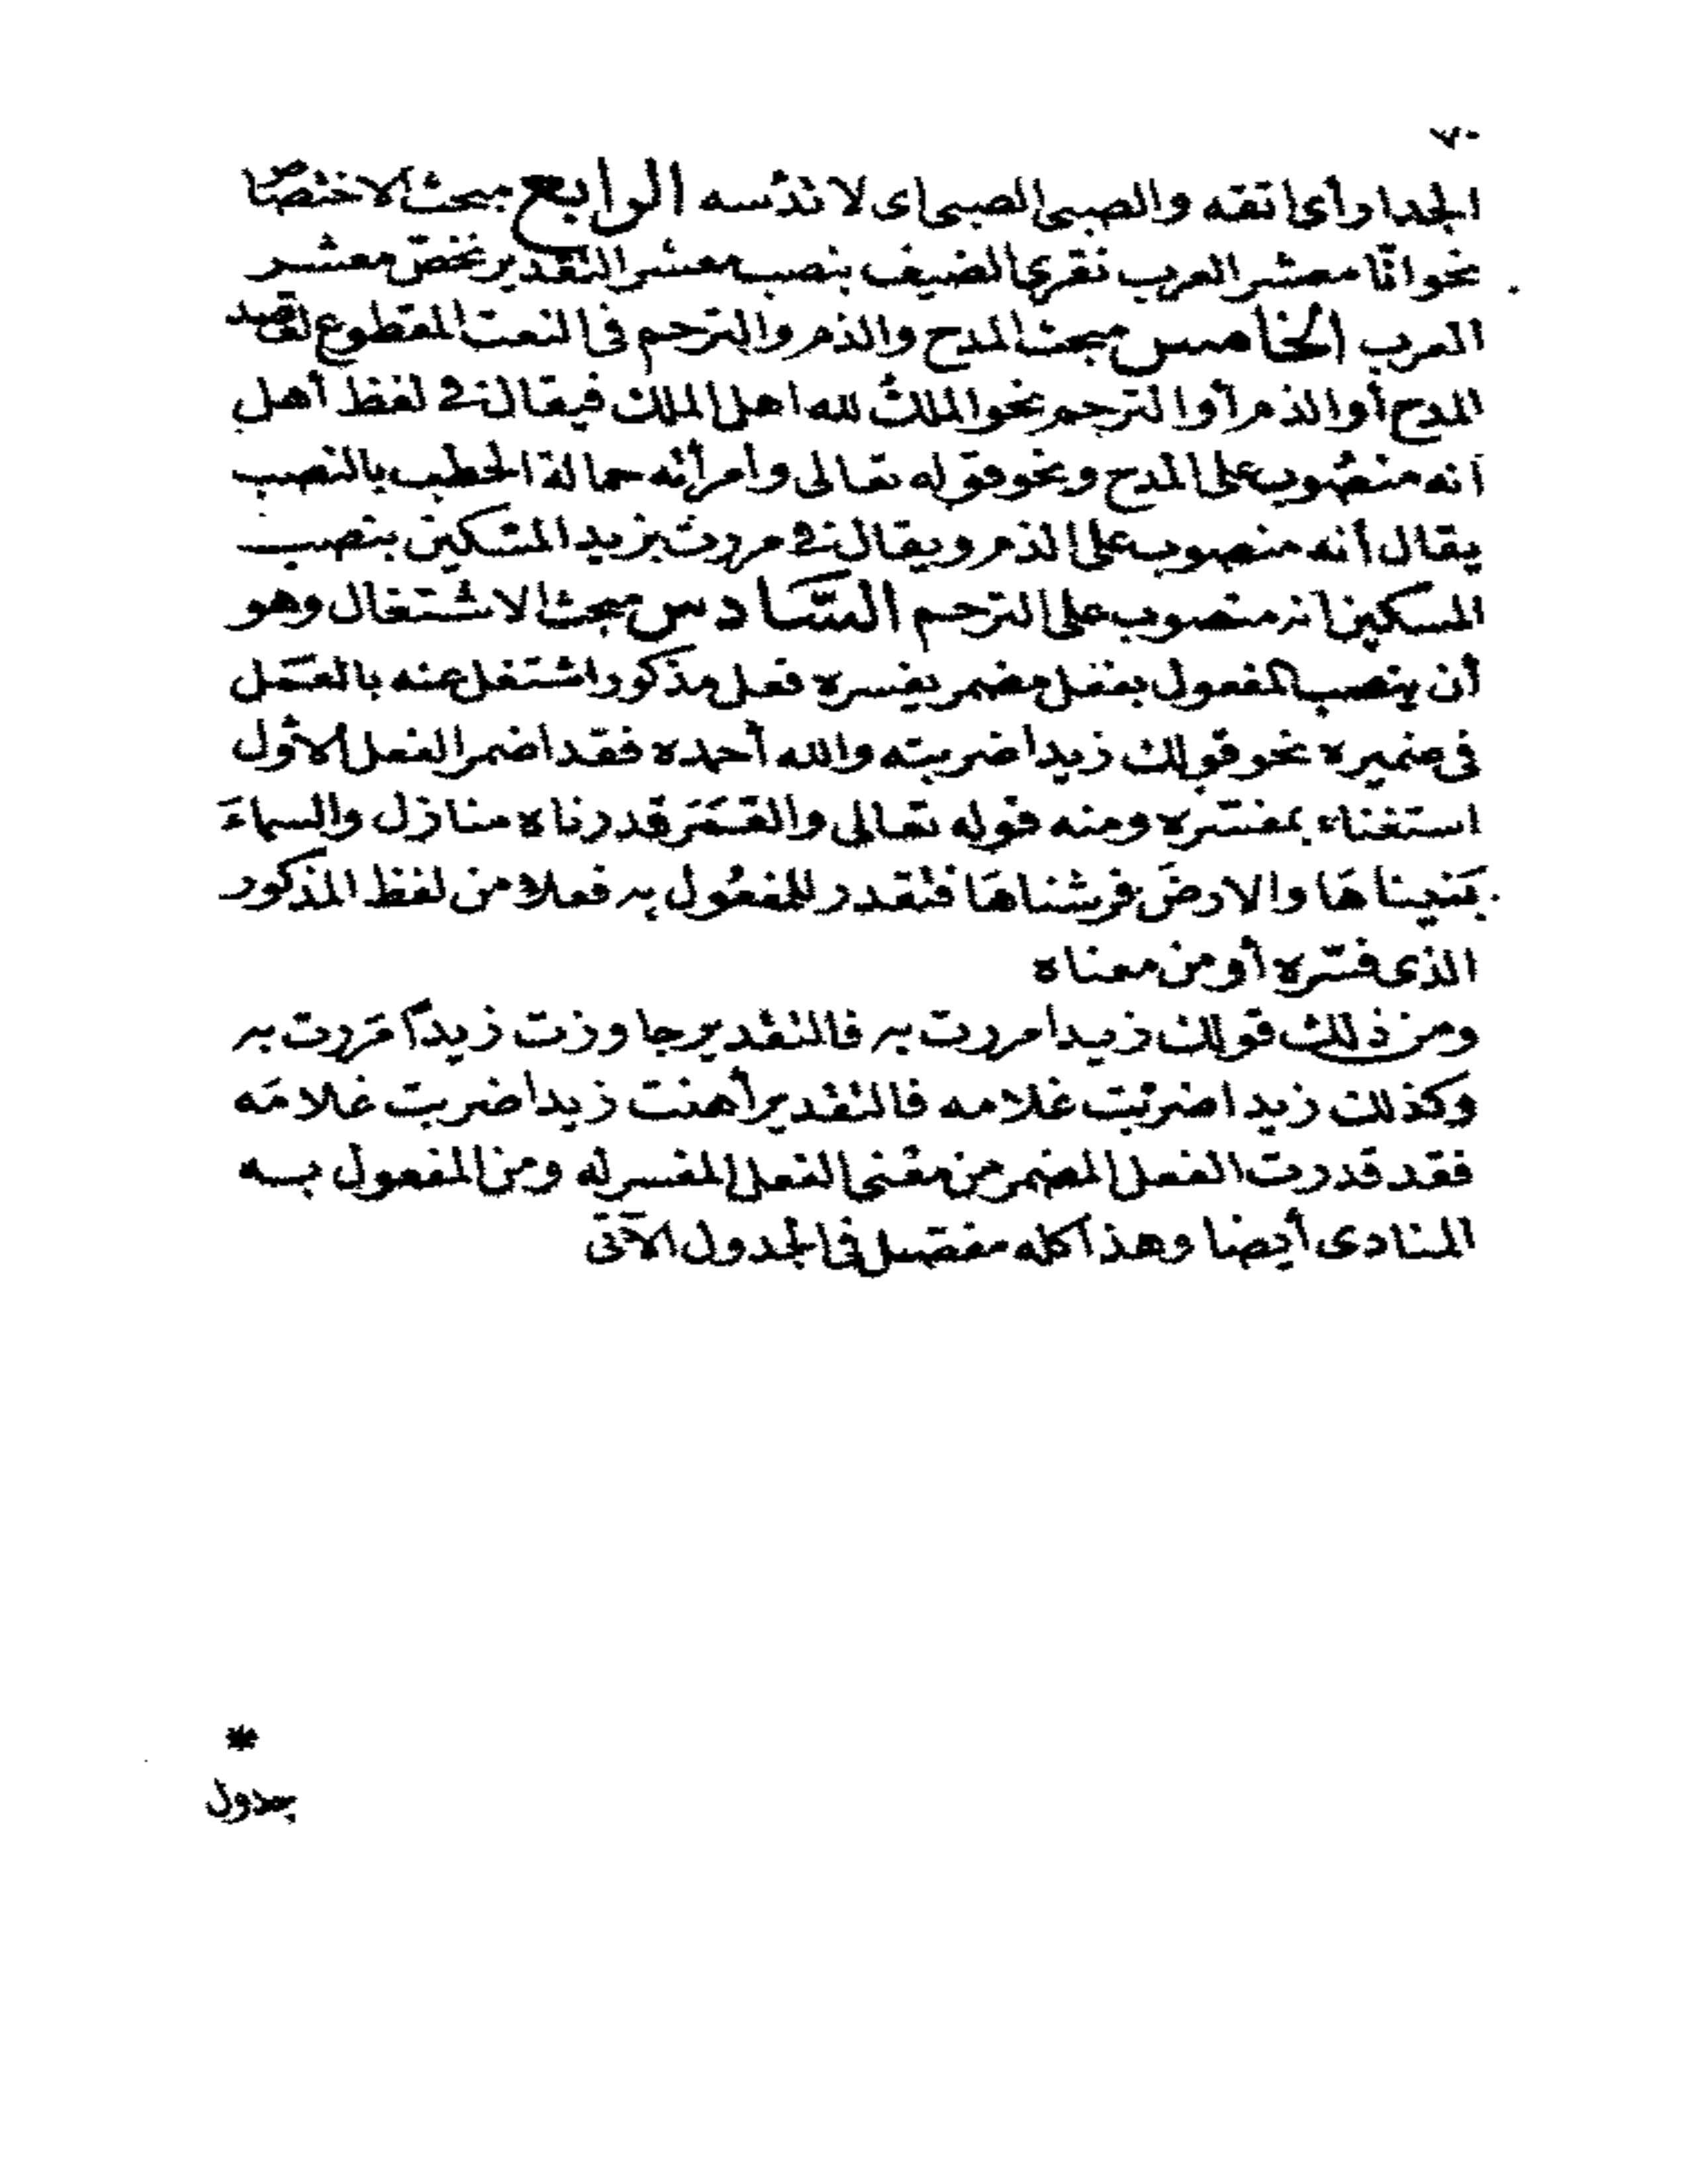 ٧٠
الجدار أى اتقه والصبى الصبى اى لا تدُسه الرابع مبحث الاختصاص
نحو انّا معشر العرب نقرى الضيف بنصب معشر التقدير نخصّ معشر
العرب الخامس مبحث المدح والذم والترحم فى النعت المقطوع لقصد
المدح أو الذم أو الترحم نحو الملكُ لله اهل الملك فيقال فى لفظ أهل
انه منصوب على المدح ونحو قوله تعالى وامرأته حمالة الحطب بالنصب
يقال أنه منصوب على الذم ويقال فى مررت بزيد المسكين بنصب
المسكين انه منصوب على الترحم السّادس مبحث الاشتغال وهو
أن ينصب المفعول بفعل مضمر يفسره فعل مذكور اشتغل عنه بالعمَل
فى ضميره نحو قولك زيدا ضربته والله أحمده فقد اضمر الفعل الأول
استغناء بمفسّره ومنه قوله تعالى والقمَرَ قدرناه منازل والسماءَ
بَنيناهَا والارضَ فرشناهَا فتقدر للمفعُول به فعلا من لفظ المذكور
الذى فسّره أو من معناه
ومن ذلك قولك زيدا مررت به فالتقدير جاوزت زيدا مَررت به
وكذلك زيدا ضربْت غلامه فالتقدير أهنت زيدا ضربت غلامَه
فقد قدرت الفعل المضمر من معْنى الفعل المفسر له ومن المفعول به
المنادى أيضا وهذا كله مفصّل فى الجدول الآتى
*
جدول